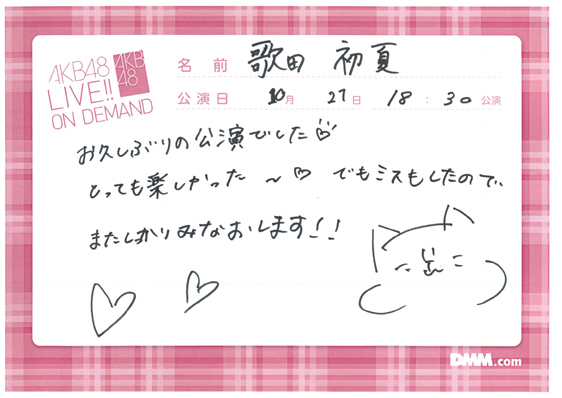 AKB48
LIVE!!
ON DEMAND
AKB
48
名前 歌田 初夏
公演日 10月 27日 18:30 公演
お久しぶりの公演でした♡
とっても楽しかった〜♡ でもミスもしたので、
またしっかりみなおします!!
DMM.com